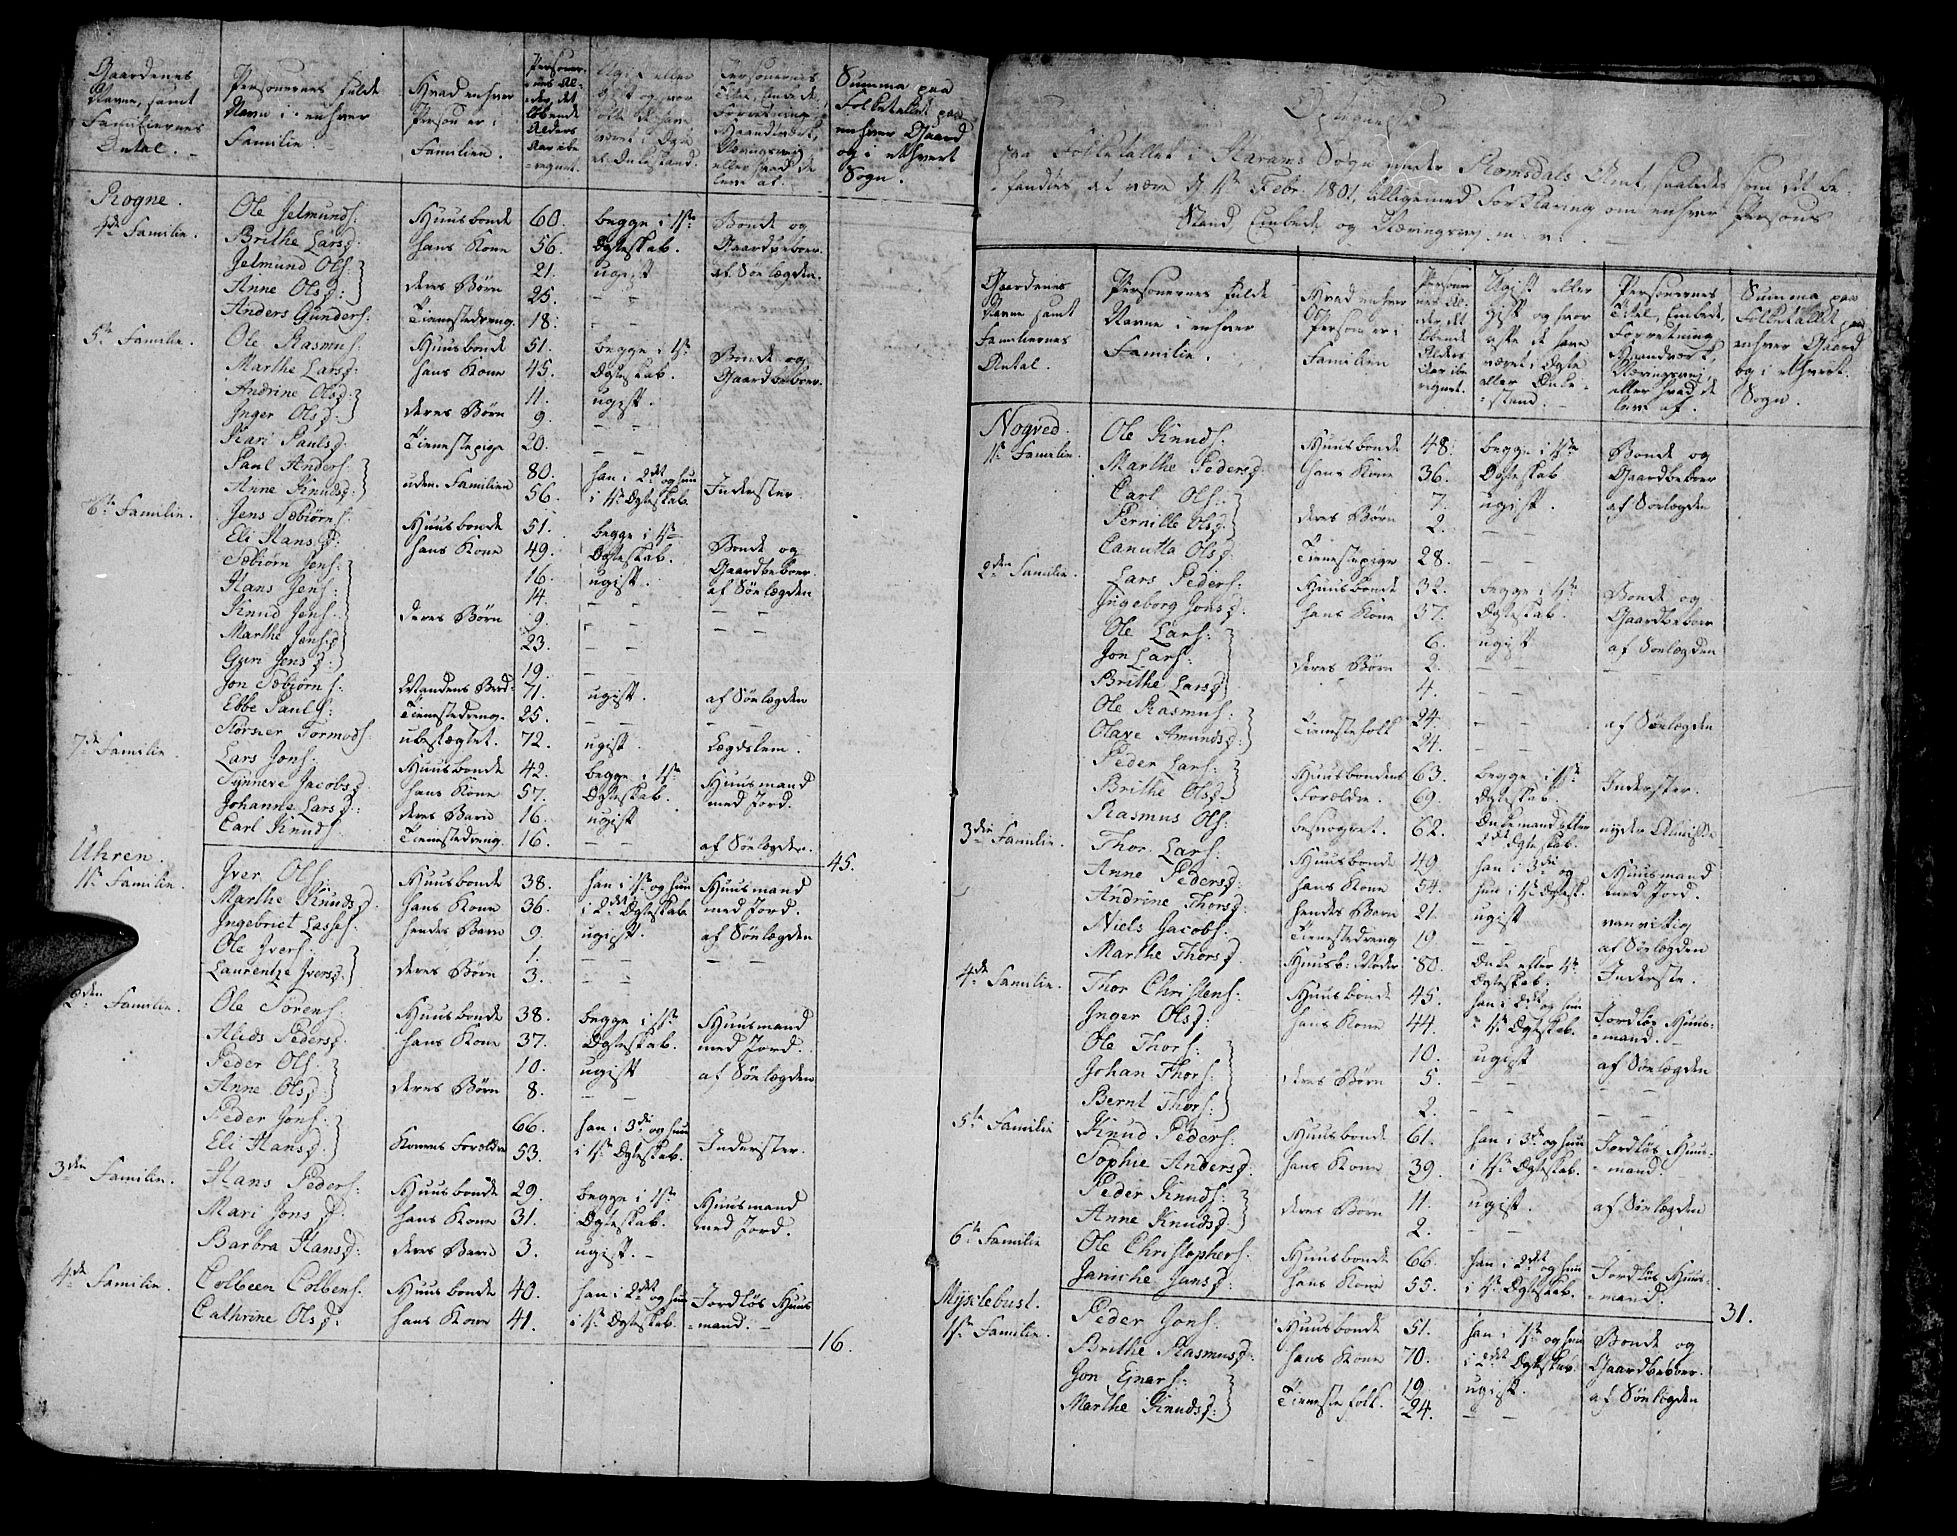 Gaardenes Navne, samt Familiernes Antal. | Personernes fulde Navn i enhver Familie. | Hvad enhver Person er i Familien. | Personernes Alder, det løbende Alders Aar iberegnet. | Ugift eller gift og hvor ofte de have været i Ægte eller Enkestand. | Personernes Titel, Embede, Forretning, Haandværk, Næringsvei eller hvad de leve af. | Summa paa Folketallet paa enhver Gaard og i ethvert Sogn.
Rogne.
4de Familie. | Ole Jelmunds: | Huusbonde | 60. | begge i 1ste | Bonde og
Brithe Larsd: | hans Kone | 56. | Ægteskab. | Gaardbeboer
Jelmund Ols: | deres Børn | 21. | ugift | af Søelægden.
Anne Olsd: | 25. | – –
Anders Gunders: | Tienestedreng. | 18. | – –
5te Familie. | Ole Rasmus: | Huusbonde | 51. | begge i 1ste | Bonde og
Marthe Larsd: | hans Kone | 45. | Ægteskab. | Gaardbeboer.
Andrine Olsd: | deres Børn | 11. | ugift.
Inger Olsd: | 9. | – –
Kari Paulsd: | Tienestepige | 20. | – –
Paul Anders: | uden Familien | 80. | han i 2det og hun | Inderster.
Anne Knudsd: | 56. | i 1ste Ægteskab.
6te Familie. | Jens Sæbiørns: | Huusbonde | 51. | begge i 1ste | Bonde og
Eli Hansd: | hans Kone | 49. | Ægteskab. | Gaardbeboer.
Sæbiørn Jens: | deres Børn | 16. | ugift. | af Søelægden
Hans Jens: | 14. | – – | – –
Knud Jens: | 9. | – – | – –
Marthe Jensd: | 23. | – –
Guri Jensd: | 19. | – –
Jon Sæbiørns: | 71. | ugift. | af Søelægden
Ebbe Pauls: | Tienestedreng. | 25. | – – | – –
Størsner Tormods: | ubeslægtet. | 72. | ugift. | Lægdslem.
7de Familie | Lars Jons: | Huusbonde | 42. | begge i 1ste | Huusmand
Synneve Jacobsd: | hans Kone | 57. | Ægteskab. | med Jord.
Johanne Larsd: | deres Barn | 16. | ugift
Carl Knuds: | Tienestedreng. | 16. | – – | af Søelægden. | 45.
Uhren.
1ste Familie. | Iver Ols: | Huusbonde | 38. | han i 1ste og hun | Huusmand
Marthe Knudsd: | hans Kone | 36. | i 2det Ægteskab | med Jord.
Ingebriet Lasses: | hendes Barn | 9. | ugift. | af Søelægden
Ole Ivers: | deres Børn | 1. | – –
Laurentze Iversd: | 3. | – –
2den Familie. | Ole Sørens: | Huusbonde | 38. | begge i 1ste | Huusmand
Alids Pedersd: | hans Kone | 37. | Ægteskab. | med Jord.
Peder Ols: | deres Børn | 10. | ugift | af Søelægden
Anne Olsd: | 8. | – –
Peder Jons: | Konens Forældre | 66. | han i 3die og hun | Inderster.
Eli Hansd: | 53. | i 1ste Ægteskab.
3die Familie. | Hans Peders: | Huusbonde | 29. | begge i 1ste | Huusmand
Mari Jonsd: | hans Kone | 31. | Ægteskab. | med Jord.
Barbra Hansd: | deres Barn | 3. | ugift. –
4de Familie. | Colbeen Colbens: | Huusbonde | 40. | han i 2det og hun | Jordløs Huus
Cathrine Olsd: | hans Kone | 41. | i 1ste Ægteskab. | =mand. – | 16.
paa Folketallet i Harams Sogn under Romsdals Amt, saaledes som det be-
fandtes at være d. 1ste Febr. 1801, tilligemed Forklaring om enhver Persons
Stand Embede og Næringsvej m. v.
Gaardenes Navne samt Familiernes Antal. | Personernes fulde Navne i enhver Familie. | Hvad enhver Person er i Familien | Personernes Alder det løbende Alders Aar iberegnet. | Ugift eller Gift og hvor ofte de have været i Ægte eller Enkestand. | Personernes Titel, Embede, Forretning, Haandværk, Næringsvej, eller hvad de leve af. | Summa paa Folketallet paa enhver Gaard og i ethvert Sogn.
Nogved.
1ste Familie. | Ole Knuds: | Huusbonde | 48. | begge i 1ste | Bonde og
Marthe Pedersd: | hans Kone | 36. | Ægteskab | Gaardbeboer
Carl Ols: | deres Børn | 7. | ugift. | af Søelægden
Pernille Olsd: | 2. | – –
Canutta Olsd: | Tienestepige | 28. | – –
2den Familie. | Lars Peders: | Huusbonde | 32. | begge i 1ste | Bonde og
Ingeborg Jonsd: | hans Kone | 37. | Ægteskab. | Gaardbeboer
Ole Lars: | deres Børn | 6. | ugift | af Søelægden
Jon Lars: | 2. | – –
Brithe Larsd: | 4. | – –
Ole Rasmus: | Tienestefolk | 24. | – – | af Søelægden
Olave Amundsd: | 24. | – –
Peder Lars: | Huusbondens | 63. | begge i 1ste | Inderster.
Brithe Olsd: | Forældre. | 69. | Ægteskab.
Rasmus Ols: | besvogret. | 62. | Enkemand efter 1det Ægteskab. | nyder Almisse
3die Familie. | Thor Lars: | Huusbonde | 49. | han i 3die og | Huusmand
Anne Pedersd: | hans Kone | 54. | hun i 1ste Ægtesk. | med Jord.
Andrine Thorsd: | hendes Barn | 21. | ugift | vanvittig
Niels Jacobs: | Tienestedreng | 19. | – – | af Søelægden
Marthe Thorsd: | Huusb: Moder | 80. | Enke efter 1ste Ægteskab. | Inderste.
4de Familie. | Thor Christens: | Huusbonde | 45. | han i 2det og hun | Jordløs Huus=
Inger Olsd: | hans Kone | 44. | i 1ste Ægteskab. | =mand. –
Ole Thors: | deres Børn | 10. | ugift | af Søelægden
Johan Thors: | 5. | – – | – –
Bernt Thors: | 2. | – – | – –
5te Familie | Knud Peders: | Huusbonde | 61. | han i 3die og hun | Jordløs Huus=
Sophie Andersd: | hans Kone | 39. | i 1ste Ægteskab. | =mand.
Peder Knuds: | deres Børn | 11. | ugift. | af Søelægden
Anne Knudsd: | 2. | – –
6te Familie | Ole Christophers: | Huusbonde | 66. | han i 2det og hun | Jordløs Huus=
Janiche Jansd: | hans Kone | 55. | i 1ste Ægteskab. | =mand. | 31.
Myklebust.
1ste Familie. | Peder Jons: | Huusbonde | 51. | han i 1ste og hun | Bonde og
Brithe Rasmusd: | hans Kone | 70. | i 2det Ægteskab. | Gaardbeboer.
Jon Ejnars: | Tienestefolk. | 19. | ugift. | af Søelægden
Marthe Knudsd: | 24. | – –